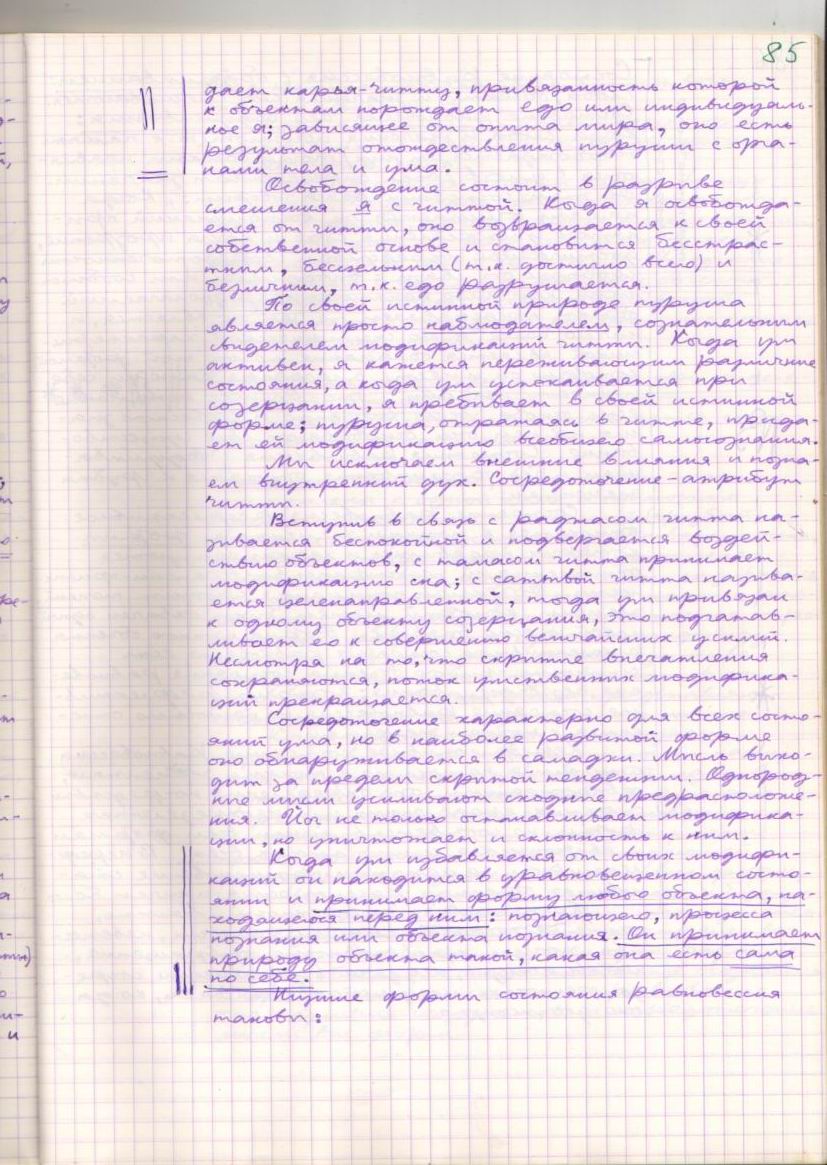 85
дает карья-читту, привязанность которой
к объектам порождает его или индивидуаль-
ное я; зависящее от опыта мира, оно есть
результат отождествления пуруши с орга-
нами тела и ума.
Освобождение состоит в разрыве
смешения я с читтой. Когда я освобожда-
ется от читты, оно возвращается к своей
собственной основе и становится бесстрас-
тным, бесцельным (т.к. достигло всего) и
безличным, т.к. его разрушается.
По своей истинной природе пуруша
является просто наблюдателем, сознательным
свидетелем модификаций читты. Когда ум
активен, я кажется переживающим различные
состояния, а когда ум успокаивается при
созерцании, я пребывает в своей истинной
форме; пуруша, отражаясь в читте, прида-
ет ей модификацию всеобщего самосознания.
Мы исключаем внешние влияния и позна-
ем внутренний дух. Сосредоточение - атрибут
читты.
Вступив в связь с раджасом читта на-
зывается беспокойной и подвергается воздей-
ствию объектов, с тамасом читта принимает
модификацию сна; с саттвой читта называ-
ется целенаправленной, тогда ум привязан
к одному объекту созерцания, это подготав-
ливает его к совершению величайших усилий.
Несмотря на то, что скрытые впечатления
сохраняются, поток умственных модифика-
ций прекращается.
Сосредоточение характерно для всех состо-
яний ума, но в наиболее развитой форме
оно обнаруживается в самадхи. Мысль выхо-
дит за пределы скрытой тенденции. Однород-
ные мысли усиливают сходные предрасположе-
ния. Йог не только останавливает модифика-
ции, но уничтожает и склонность к ним.
Когда ум избавляется от своих модифи-
каций он находится в уравновешенном состо-
янии и принимает форму любого объекта, на-
ходящегося перед ним: познающего, процесса
познания или объекта познания. Он принимает
природу объекта такой, какая она есть сама
по себе.
Низшие формы состояния равновесия
таковы: